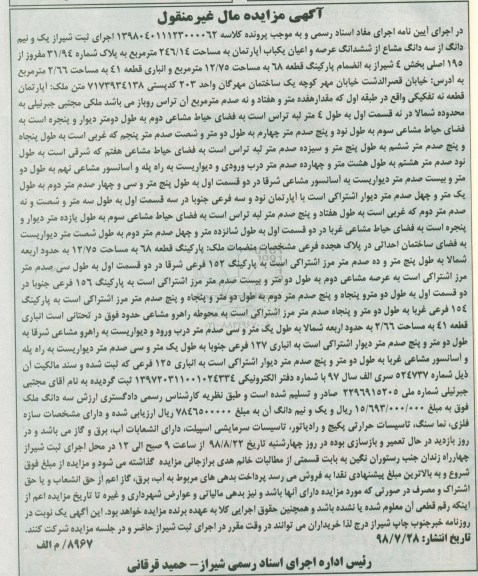 آگهی مزایده مال غیرمنقول
در اجرای آیین نامه اجرای مفاد اسناد رسمی و به موجب پرونده کلاسه ۱۳۹۸۰۴۰۱۱۱۲۳۰۰۰۰۶۲ اجرای ثبت شیراز یک و نیم
دانگ از سه دانگ مشاع از ششدانگ عرصه و اعیان یکباب آپارتمان به مساحت ۲۴۶/۱۴ مترمربع به پلاک شماره ۳۱/۹۴ مفروز از
۱۹۵ اصلی بخش ۴ شیراز به انضمام پارکینگ قطعه ۶۸ به مساحت ۱۲/۷۵ مترمربع و انباری قطعه ۴۱ به مساحت ۲/۶۶ مترمربع
به آدرس: خیابان قصردشت خیابان مهر کوچه یک ساختمان مهرگان واحد ۲۰۳ کدپستی ۷۱۷۳۹۳۴۱۳۸ متن ملک: آپارتمان
قطعه نه تفکیکی واقع در طبقه اول که مقدار هفده متر و هفتاد و نه صدم مترمربع آن تراس روباز می باشد ملکی مجتبی جبرئیلی به
محدوده شمالا در نه قسمت اول به طول ۴ متر لبه تراس است به فضای حیاط مشاعی دوم به طول دومتر دیوار و پنجره است به
فضای حیاط مشاعی سوم به طول نود و پنج صدم متر چهارم به طول دو متر و شصت صدم متر پنجم که غربی است به طول پنجاه
و پنج صدم متر ششم به طول پنج متر و سیزده صدم متر لبه تراس است به فضای حیاط مشاعی هفتم که شرقی است به طول
نود صدم متر هشتم به طول هشت متر و چهارده صدم متر درب ورودی و دیواریست به راه پله و آسانسور مشاعی نهم به طول دو
متر و بیست صدم متر دیواریست به آسانسور مشاعی شرقا در دو قسمت اول به طول پنج متر و سی و چهار صدم متر دوم به طول
یک متر و چهل صدم متر دیوار اشتراکی است با آپارتمان نود و سه فرعی جنوبا در سه قسمت اول به طول سه متر و شصت و نه
صدم متر دوم که غربی است به طول هفتاد و پنج صدم متر لبه تراس است به فضای حیاط مشاعی سوم به طول یازده متر دیوار و
پنجره است به فضای حیاط مشاعی غربا در دو قسمت اول به طول شانزده متر و چهل صدم متر دوم به طول شصت متر دیواریست
به فضای ساختمان احداثی در پلاک هجده فرعی مشخصات منضمات ملک: پارکینگ قطعه ۶۸ به مساحت ۱۲/۷۵ به حدود اربعه
شمالا به طول پنج متر و ده صدم متر مرز اشتراکی است به پارکینگ ۱۵۲ فرعی شرقا در دو قسمت اول به طول سی صدم متر
مرز اشتراکی است به عرصه مشاعی دوم به طول دو متر و بیست صدم متر مرز اشتراکی است به پارکینگ ۱۵۶ فرعی جنوبا در
دو قسمت اول به طول دو مترو پنجاه و پنج صدم متر دوم به طول دو متر و پنجاه و پنج صدم متر مرز اشتراکی است به پارکینگ
۱۵۴ فرعی غربا به طول دو متر و پنجاه صدم متر مرز اشتراکی است به محوطه راهرو مشاعی حدود فوق در تحتانی است انباری
قطعه ۴۱ به مساحت ۲/۶۶ به حدود اربعه شمالا به طول یک متر و سی صدم متر درب ورود و دیواریست به راهرو مشاعی شرقا به
طول دو متر و پنج صدم متر دیوار اشتراکی است به انباری ۱۲۷ فرعی جنوبا به طول یک متر و سی صدم متر دیواریست به راه پله
و آسانسور مشاعی غربا به طول دو متر و پنج صدم متر دیوار اشتراکی است به انباری ۱۲۵ فرعی که ثبت شده و سند مالکیت آن
ذیل شماره ۵۲۴۷۳۷ سری الف سال ۹۷ با شماره دفتر الکترونیکی ۱۳۹۷۲۰۳۱۱۰۰۱۰۲۴۳۳۴ ثبت گردیده به نام آقای مجتبی
جبرئیلی شماره ملی ۲۲۹۶۹۱۵۲۰۵ صادر و تسلیم شده است و طبق نظریه کارشناس رسمی دادگستری ارزش سه دانگ ملک
فوق به مبلغ ۱۵/۶۹۳/۰۰۰/۰۰۰ ریال و یک و نیم دانگ آن به مبلغ ۷۸۴۶۵۰۰۰۰۰ ریال ارزیابی شده و دارای مشخصات سازه
فلزی، نما سنگ، تاسیسات حرارتی پکیج و رادیاتور، تاسیسات سرمایشی اسپیلت، دارای انشعابات آب، برق و گاز می باشد و در
روز بازدید در حال تعمیر و بازسازی بوده در روز چهارشنبه تاریخ ۹۸/۸/۲۲ از ساعت ۹ صبح الی ۱۲ در محل اجرای ثبت شیراز
چهارراه زندان جنب رستوران نگین به بابت قسمتی از مطالبات خانم هدی برازجانی مزایده گذاشته می شود و مزایده از مبلغ فوق
شروع و به بالاترین مبلغ پیشنهادی نقدا به فروش می رسد پرداخت بدهی های مربوط به آب، برق، گاز اعم از حق انشعاب و یا حق
اشتراک و مصرف در صورتی که مورد مزایده دارای آنها باشد و نیز بدهی مالیاتی و عوارض شهرداری و غیره تا تاریخ مزایده اعم از
اینکه رقم قطعی آن معلوم شده یا نشده باشد و همچنین حقوق اجرایی کلا به عهده برنده مزایده خواهد بود. این آگهی یک نوبت در
روزنامه خبرجنوب چاپ شیراز درج لذا خریداران می توانند در وقت مقرر در اجرای ثبت شیراز حاضر و در جلسه مزایده شرکت کنند.
تاریخ انتشار: ۹۸/۷/۲۸
۸۹۶۷/ م الف
رئیس اداره اجرای اسناد رسمی شیراز – حمید قرقانی